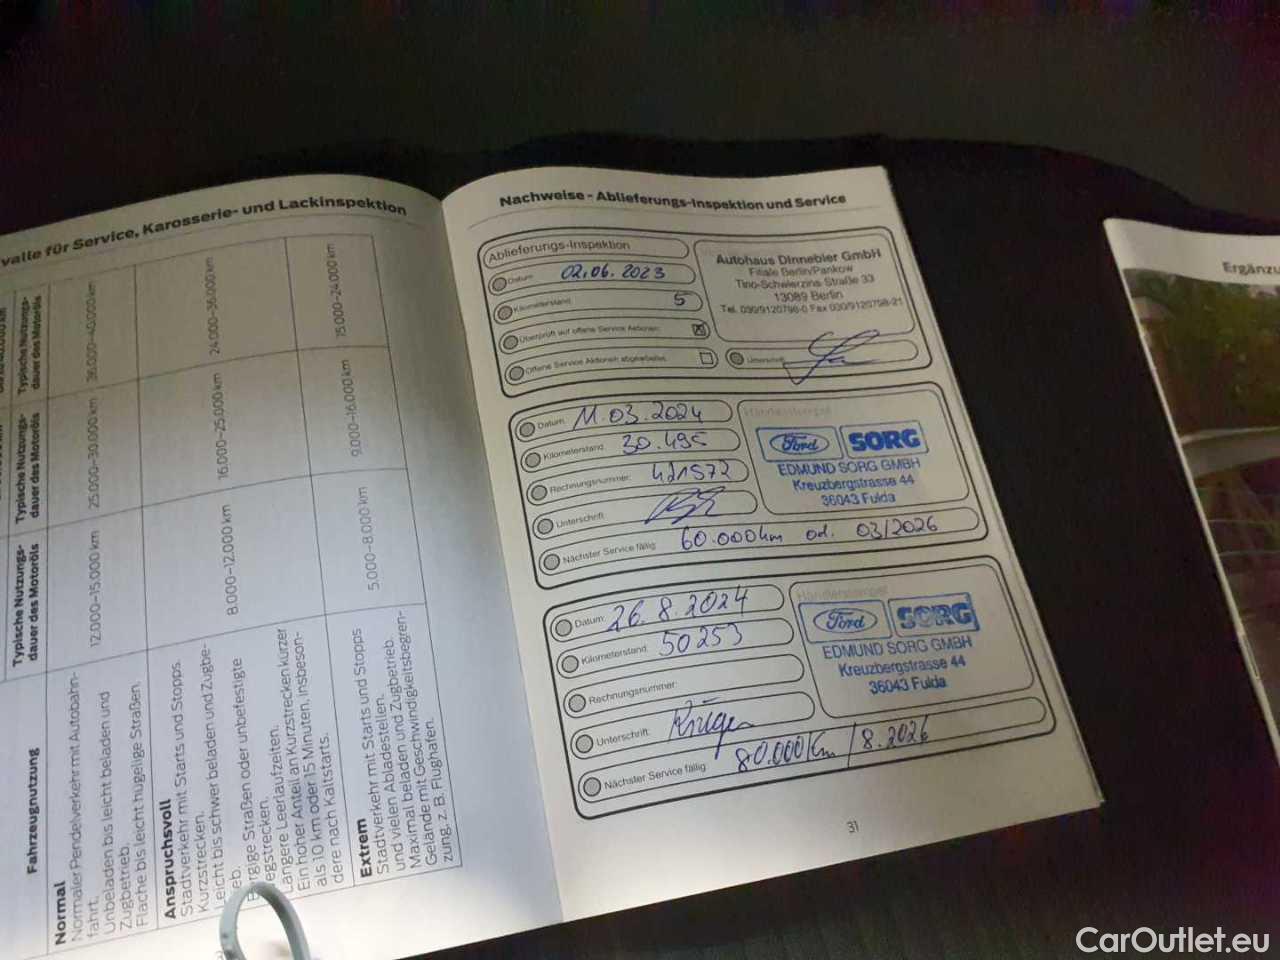 valle für Service, Karosserie- und Lackinspektion
Fahrzeugnutzung
Typische Nutzungs-
dauer des Motoröls
Typische Nutzungs-
dauer des Motoröls
Typische Nutzungs-
dauer des Motoröls
Normal
Normaler Pendelverkehr mit Autobahn-
fahrt.
Unbeladen bis leicht beladen und
Zugbetrieb.
Flache bis leicht hügelige Straßen.
12.000–15.000 km
25.000–30.000 km
36.000–40.000 km
Anspruchsvoll
Stadtverkehr mit Starts und Stopps.
Kurzstrecken.
Leicht bis schwer beladen und Zugbe-
eb.
Straßen oder unbefestigte
egstrecken.
Längere Leerlaufzeiten.
Ein hoher Anteil an Kurzstrecken kürzer
als 10 km oder 15 Minuten, insbeson-
dere nach Kaltstarts.
8.000–12.000 km
16.000–25.000 km
24.000–36.000 km
Extrem
Stadtverkehr mit Starts und Stopps
und vielen Abladestellen.
Maximal beladen und Zugbetrieb.
Gelände mit Geschwindigkeitsbegren-
zung, z. B. Flughafen.
5.000–8.000 km
9.000–16.000 km
15.000–24.000 km
Nachweise - Ablieferungs-Inspektion und Service
Ablieferungs-Inspektion
Datum: 02.06.2023
Kilometerstand: 5
Überprüft auf offene Service Aktionen:
Offene Service Aktionen abgearbeitet:
Autohaus Dinnebier GmbH
Filiale Berlin/Pankow
Tino-Schwierzina-Straße 33
13089 Berlin
Tel. 030/9120798-0 Fax 030/9120798-21
Unterschrift:
Datum: 11.03.2024
Kilometerstand: 30.495
Rechnungsnummer: 421572
Unterschrift:
Nächster Service fällig: 60.000km od. 03/2026
Händlerstempel
Ford SORG
EDMUND SORG GMBH
Kreuzbergstrasse 44
36043 Fulda
Datum: 26.8.2024
Kilometerstand: 50253
Rechnungsnummer:
Unterschrift: Krüger
Nächster Service fällig: 80.000 Km / 8.2026
Händlerstempel
Ford SORG
EDMUND SORG GMBH
Kreuzbergstrasse 44
36043 Fulda
31
Ergänzu
CarOutlet.eu